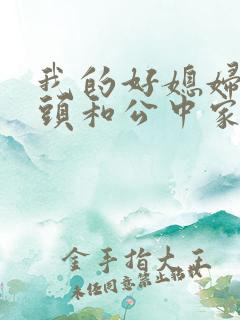 我的好媳婦
頭和公中家
金手指大王
未任同意禁止转载